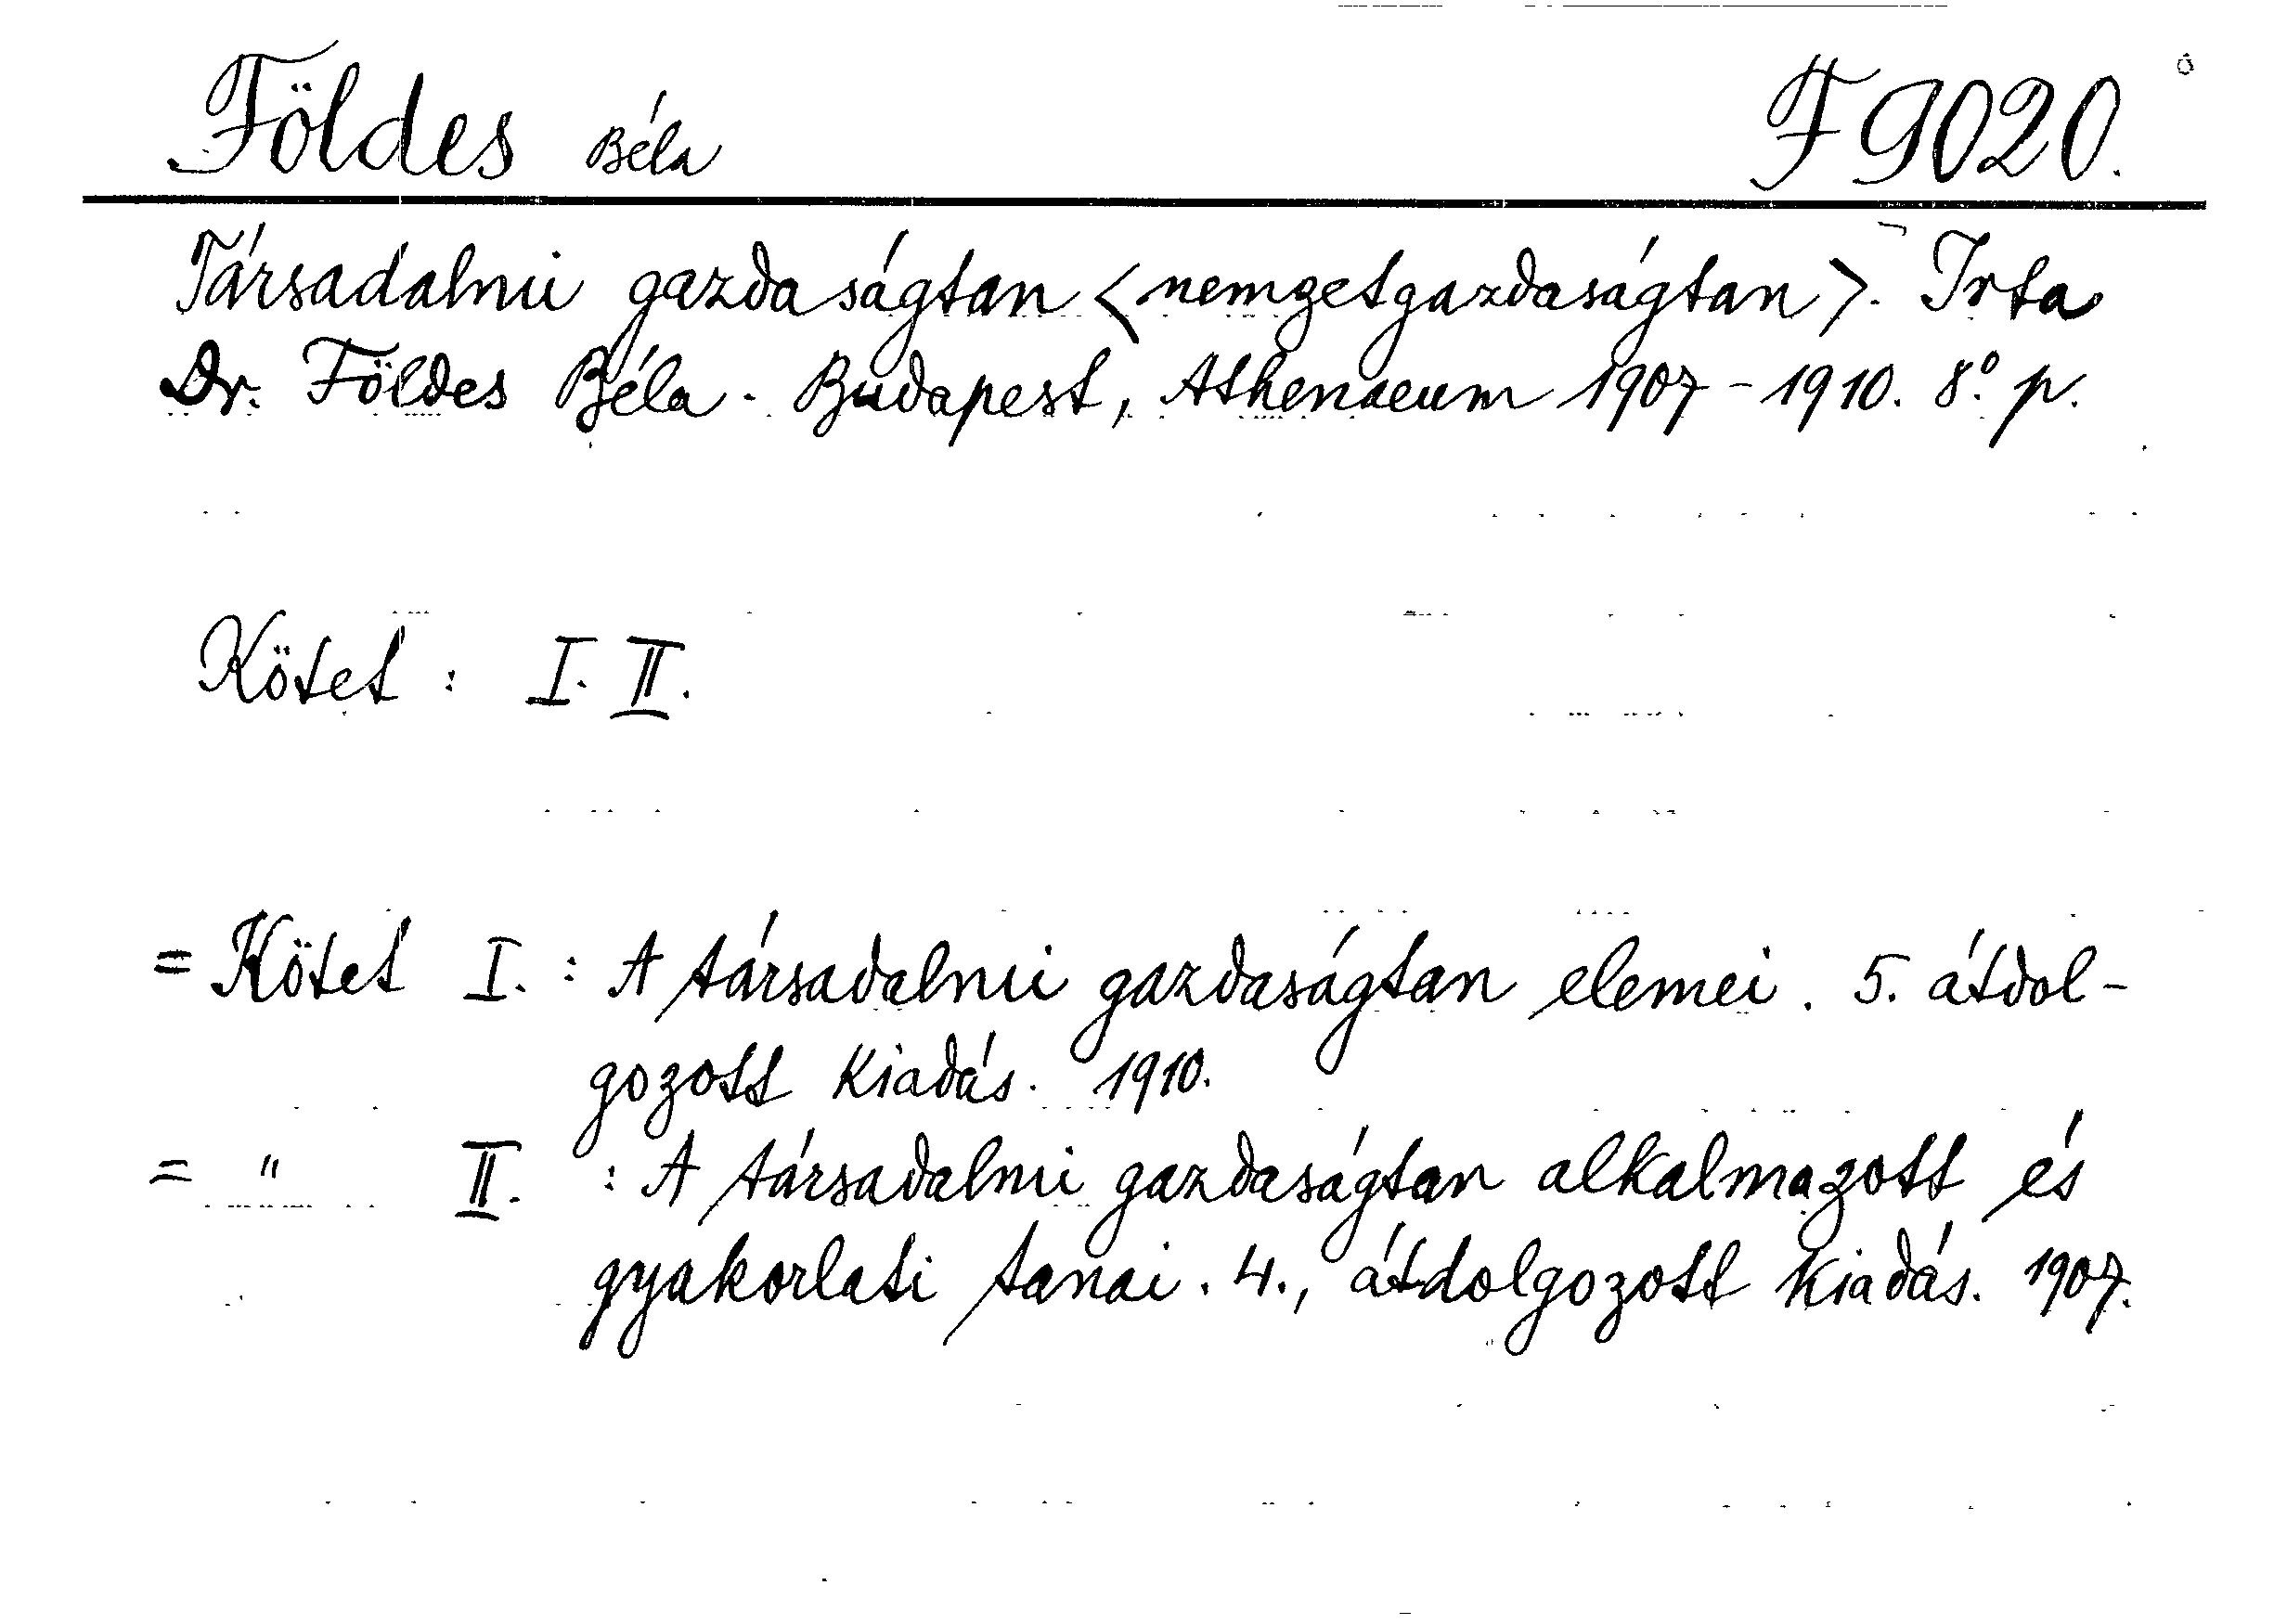 Földes Béla F 9020.
Társadalmi gazdaságtan <nemzetgazdaságtan>. Irta
Dr. Földes Béla. Budapest, Athenaeum 1907-1910. 8° p.
Kötet : I. II.
= Kötet I. : A társadalmi gazdaságtan elemei. 5. átdol-
gozott kiadás. 1910.
= " II. : A társadalmi gazdaságtan alkalmazott és
gyakorlati tanai. 4., átdolgozott kiadás. 1907.